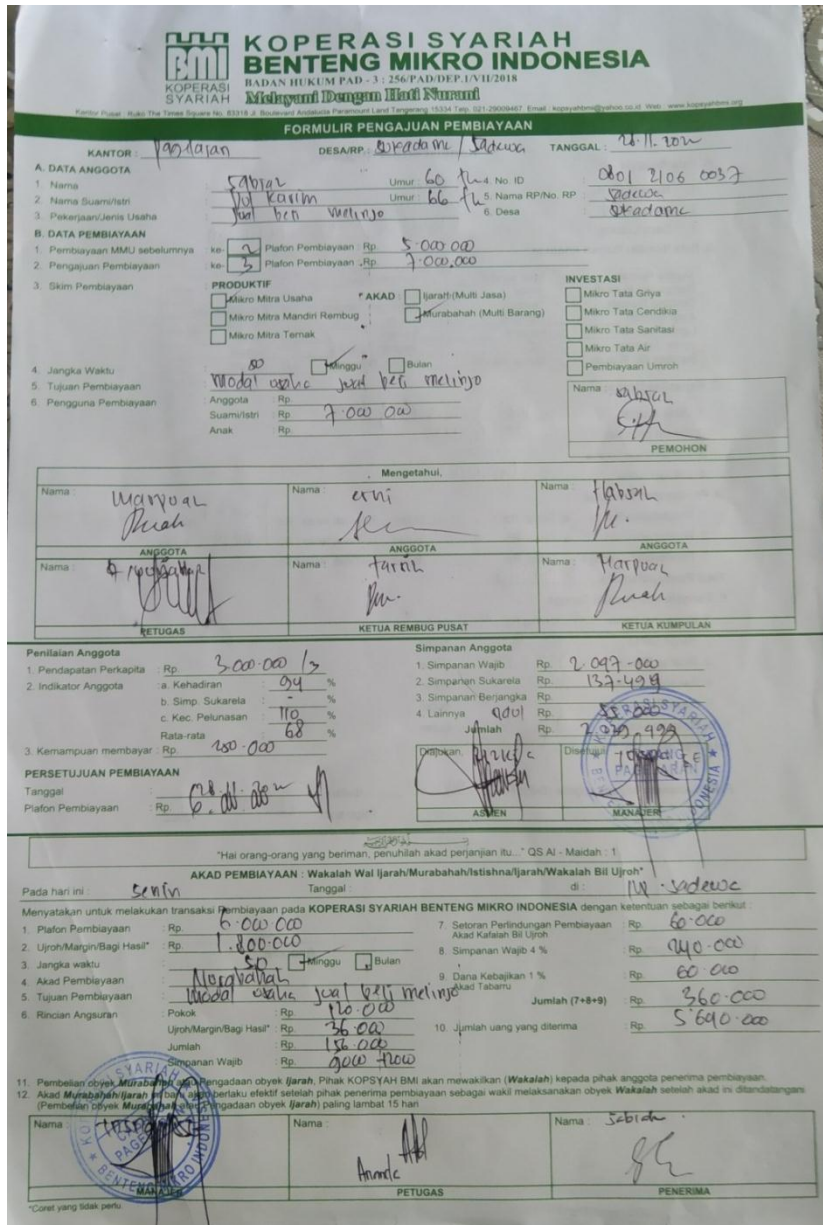 BMI
KOPERASI SYARIAH
KOPERASI SYARIAH
BENTENG MIKRO INDONESIA
BADAN HUKUM PAD - 3 : 256/PAD/DEP.1/VII/2018
Melayani Dengan Hati Nurani
Kantor Pusat : Ruko The Times Square No. Boulevard Andalucia Paramount Land Tangerang 15334 Telp. 021-29009467 Email : kopsyahbmi@yahoo.co.id Web : www.kopsyahbmi.org
FORMULIR PENGAJUAN PEMBIAYAAN
KANTOR : DESA/RP.: Sukadame / Sadewa TANGGAL : 28.11.2022
A. DATA ANGGOTA
1. Nama : Sabrah Umur : 60 th 4. No. ID 0801 2106 0037
2. Nama Suami/Istri : Dul Karim Umur : 66 th 5. Nama RP/No. RP Sadewa
3. Pekerjaan/Jenis Usaha : Jual beli melinjo 6. Desa
B. DATA PEMBIAYAAN
1. Pembiayaan MMU sebelumnya : ke- 2 Plafon Pembiayaan : Rp. 5.000.000
2. Pengajuan Pembiayaan : ke- 3 Plafon Pembiayaan : Rp. 7.000.000
3. Skim Pembiayaan : PRODUKTIF AKAD : Ijarah (Multi Jasa) INVESTASI
Mikro Mitra Usaha Murabahah (Multi Barang) Mikro Tata Griya
Mikro Mitra Mandiri Rembug Mikro Tata Cendikia
Mikro Mitra Ternak Mikro Tata Sanitasi
Mikro Tata Air
Pembiayaan Umroh
4. Jangka Waktu : 50 Minggu Bulan
5. Tujuan Pembiayaan : Modal usaha jual beli melinjo
6. Pengguna Pembiayaan : Anggota : Rp.
Suami/Istri : Rp. 7.000 000
Anak : Rp.
Nama : Sabrah
PEMOHON
Mengetahui,
Nama : Marpuah Nama : erni Nama : Habsah
ANGGOTA ANGGOTA ANGGOTA
Nama : Nama : Nama : Marpuah
PETUGAS KETUA REMBUG PUSAT KETUA KUMPULAN
Penilaian Anggota
1. Pendapatan Perkapita : Rp. 3.000.000 /3
2. Indikator Anggota : a. Kehadiran : 94 %
b. Simp. Sukarela : - %
c. Kec. Pelunasan : 110 %
Rata-rata : 68 %
3. Kemampuan membayar : Rp. 250.000
Simpanan Anggota
1. Simpanan Wajib Rp. 2.097.000
2. Simpanan Sukarela Rp. 137.499
3. Simpanan Berjangka Rp.
4. Lainnya Rp.
Jumlah Rp.
PERSETUJUAN PEMBIAYAAN
Tanggal : 28.
Plafon Pembiayaan : Rp. 6.000.000
Diajukan,
ASMEN
Disetujui
MANAJER
KOPERASI SYARIAH BENTENG MIKRO INDONESIA
"Hai orang-orang yang beriman, penuhilah akad perjanjian itu..." QS Al - Maidah : 1
AKAD PEMBIAYAAN : Wakalah Wal Ijarah/Murabahah/Istishna/Ijarah/Wakalah Bil Ujroh*
Pada hari ini : Senin Tanggal : di : Sadewa
Menyatakan untuk melakukan transaksi Pembiayaan pada KOPERASI SYARIAH BENTENG MIKRO INDONESIA dengan ketentuan sebagai berikut :
1. Plafon Pembiayaan : Rp. 6.000 000
2. Ujroh/Margin/Bagi Hasil* : Rp. 1.800.000
3. Jangka waktu : 50 Minggu Bulan
4. Akad Pembiayaan : Murabahah
5. Tujuan Pembiayaan : Modal usaha jual beli melinjo
6. Rincian Angsuran : Pokok : Rp. 120.000
Ujroh/Margin/Bagi Hasil* : Rp. 36.000
Jumlah : Rp. 156.000
Simpanan Wajib : Rp.
7. Setoran Perlindungan Pembiayaan : Rp. 60.000
Akad Kafalah Bil Ujroh
8. Simpanan Wajib 4 % : Rp. 240.000
9. Dana Kebajikan 1 % : Rp. 60.000
Akad Tabarru
Jumlah (7+8+9) : Rp. 360.000
10. Jumlah uang yang diterima : Rp. 5.640.000
11. Pembelian obyek Murabahah atau Pengadaan obyek Ijarah, Pihak KOPSYAH BMI akan mewakilkan (Wakalah) kepada pihak anggota penerima pembiayaan.
12. Akad Murabahah/Ijarah ini baru akan berlaku efektif setelah pihak penerima pembiayaan sebagai wakil melaksanakan obyek Wakalah setelah akad ini ditandatangani
(Pembelian obyek Murabahah atau Pengadaan obyek Ijarah) paling lambat 15 hari
Nama : Nama : Nama : Sabrah
MANAJER PETUGAS PENERIMA
*Coret yang tidak perlu